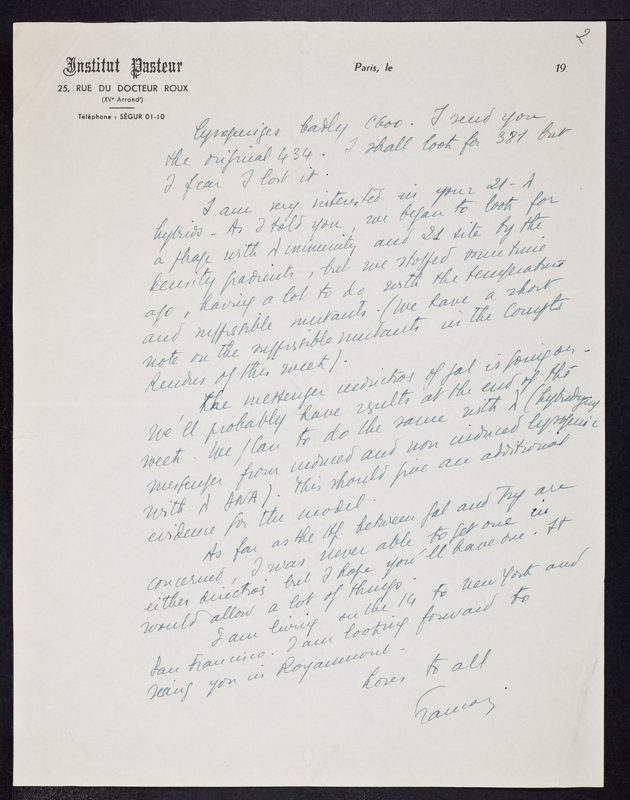 2
Institut Pasteur
25, RUE DU DOCTEUR ROUX
(XVᵉ Arrondᵗ)
Téléphone : SÉGUR 01-10
Paris, le 19
Lysogenizes badly C600. I send you
the original 434. I shall look for 381 but
I fear I lost it.
I am very interested in your 21-λ
hybrids - As I told you, we began to look for
a phage with λ immunity and 21 site by the
density gradients, but we stopped some time
ago, having a lot to do with the temperature
and suppressible mutants. (We have a short
note on the suppressible mutants in the Compts
Rendus of this week).
The messenger induction of gal is going on -
We'll probably have results at the end of the
week. We plan to do the same with λ (hybridizing
messenger from induced and non induced lysogenic
with λ DNA). This should give an additional
evidence for the model.
As far as the between gal and Try are
concerned, I was never able to get one in
either direction but I hope you'll have one. It
would allow a lot of things.
I am living on the 14 to New York and
San Francisco. I am looking forward to
seing you in Royaumont.
Loves to all
Francois